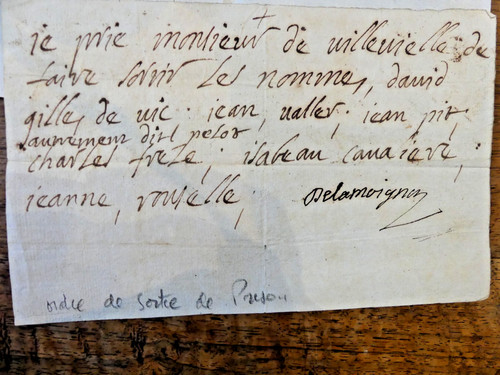 je prie monsieur de villevielle de
faire sortir les nommes, david
gilles de vic. jean, valles; jean pit,
autrement dit pelot
charles freze; isabeau cavaiere;
jeanne, rouselle;
Delamoignon
ordre de sortie de Prison